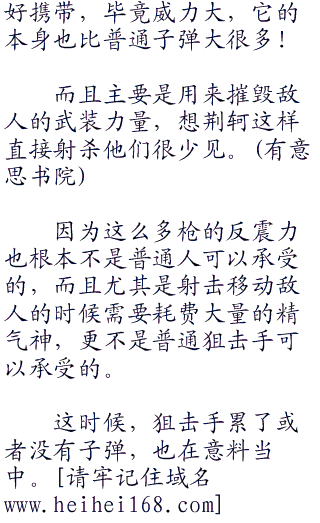 好携带，毕竟威力大，它的
本身也比普通子弹大很多！
而且主要是用来摧毁敌
人的武装力量，想荆轲这样
直接射杀他们很少见。(有意
思书院)
因为这么多枪的反震力
也根本不是普通人可以承受
的，而且尤其是射击移动敌
人的时候需要耗费大量的精
气神，更不是普通狙击手可
以承受的。
这时候，狙击手累了或
者没有子弹，也在意料当
中。[请牢记住域名
www.heihei168.com]